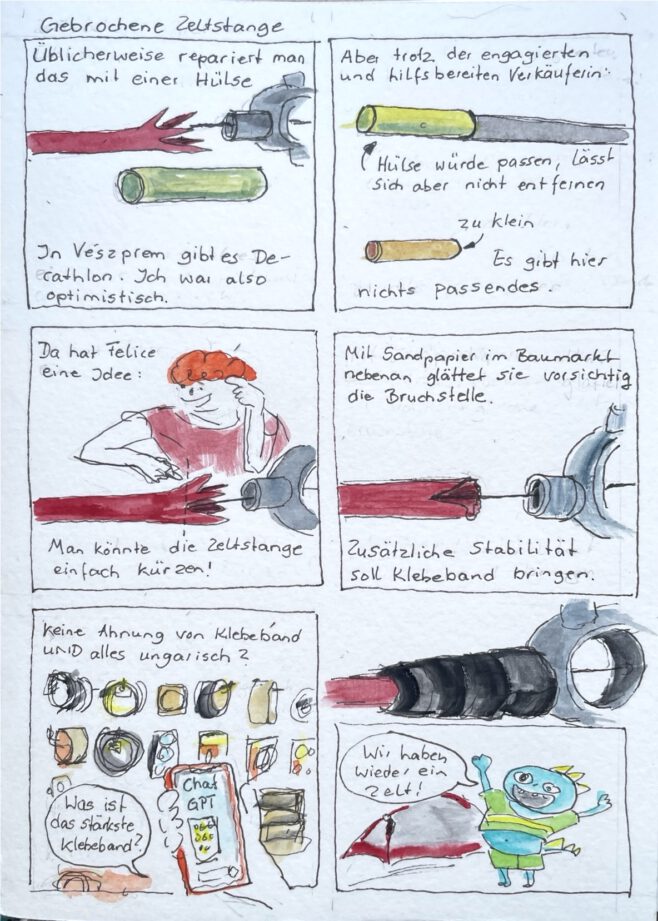 Gebrochene Zeltstange
Üblicherweise repariert man
das mit einer Hülse
In Vészprem gibt es De-
cathlon. Ich war also
optimistisch.
Aber trotz der engagierten
und hilfsbereiten Verkäuferin:
Hülse würde passen, lässt
sich aber nicht entfernen
zu klein
Es gibt hier
nichts passendes.
Da hat Felice
eine Idee:
Man könnte die Zeltstange
einfach kürzen!
Mit Sandpapier im Baumarkt
nebenan glättet sie vorsichtig
die Bruchstelle.
Zusätzliche Stabilität
soll Klebeband bringen.
Keine Ahnung von Klebeband
UND alles ungarisch?
Was ist
das stärkste
Klebeband?
Chat
GPT
Wir haben
wieder ein
Zelt!